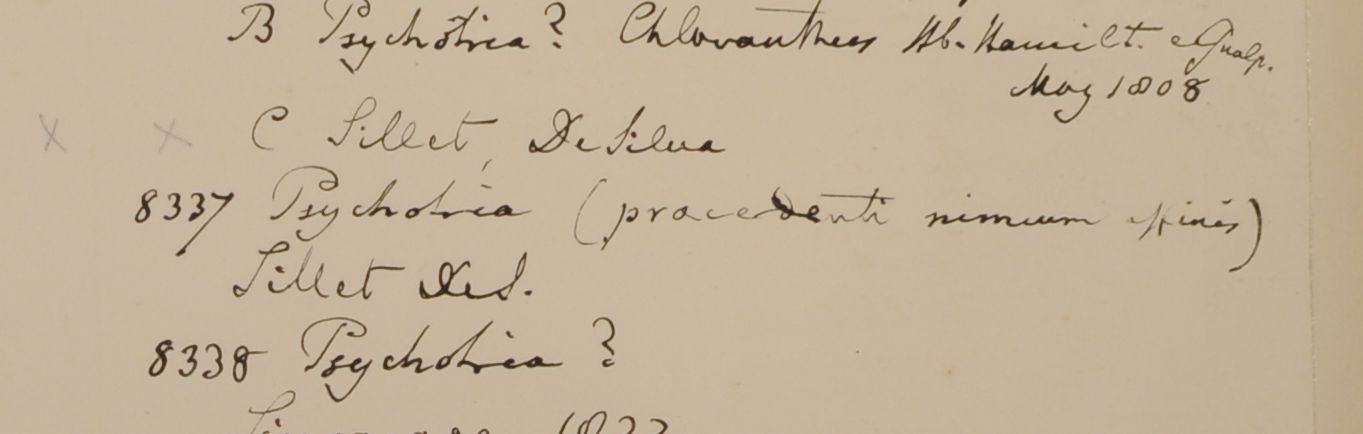 B Psychotria? Chloranthus Hb. Hamilt. e Gualp.
May 1808
x x C Sillet, De Silva
8337 Psychotria (praecedenti nimium affinis)
Sillet DeS.
8338 Psychotria ?
Singapore 1822